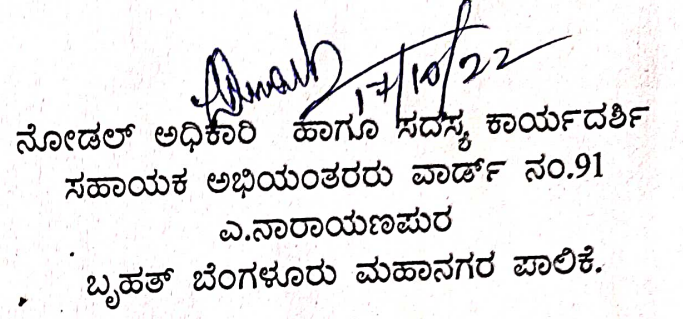 17/10/22
ನೋಡಲ್ ಅಧಿಕಾರಿ ಹಾಗೂ ಸದಸ್ಯ ಕಾರ್ಯದರ್ಶಿ
ಸಹಾಯಕ ಅಭಿಯಂತರರು ವಾರ್ಡ್ ನಂ.91
ಎ.ನಾರಾಯಣಪುರ
ಬೃಹತ್ ಬೆಂಗಳೂರು ಮಹಾನಗರ ಪಾಲಿಕೆ.